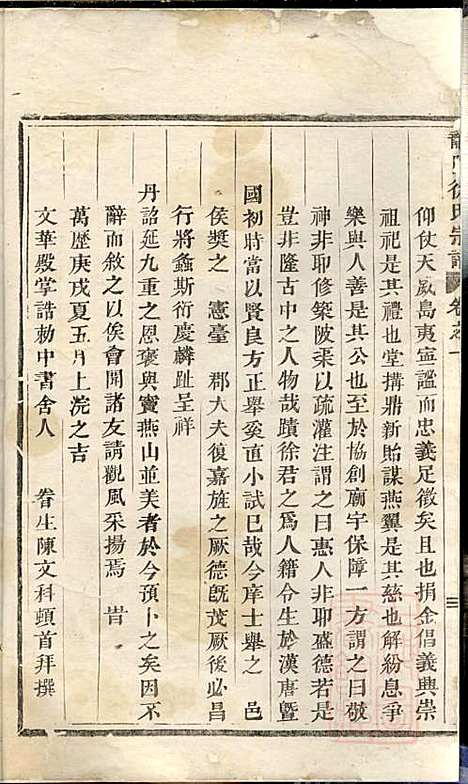 龍門徐氏宗譜 卷之一
仰仗天威島夷寍謐而忠義足徵矣且也捐金倡義興崇
祖祀是其禮也堂搆鼎新貽謀燕翼是其慈也解紛息爭
樂與人善是其公也至於協創廟宇保障一方謂之曰敬
神非耶修築陂渠以疏灌注謂之曰惠人非耶盛德若是
豈非隆古中之人物哉蹟徐君之爲人籍令生於漢唐暨
國初時當以賢良方正舉奚直小試已哉今庠士舉之 邑
侯獎之 憲臺 郡大夫復嘉旌之厥德旣茂厥後必昌
行將螽斯衍慶麟趾呈祥
丹詔延九重之恩褒與竇燕山並美者於今預卜之矣因不
辭而敘之以俟會開諸友請觀風采揚焉 旹
萬歷庚戌夏五月上浣之吉
文華殿掌誥勅中書舍人 眷生陳文科頓首拜撰